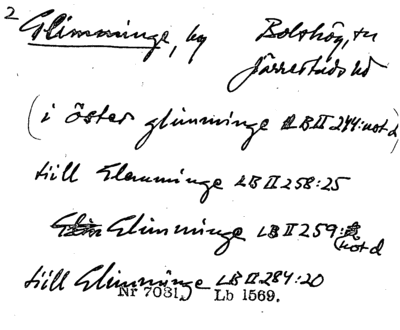 2 Glimminge, by Bolshög, sn
Järrestads hd
(i öster glimminge LB II 244: not d)
till Glemminge LB II 258:25
Glimminge LB II 259: not d
till Glimminge LB II 284:20
Nr 7031, Lb 1569.